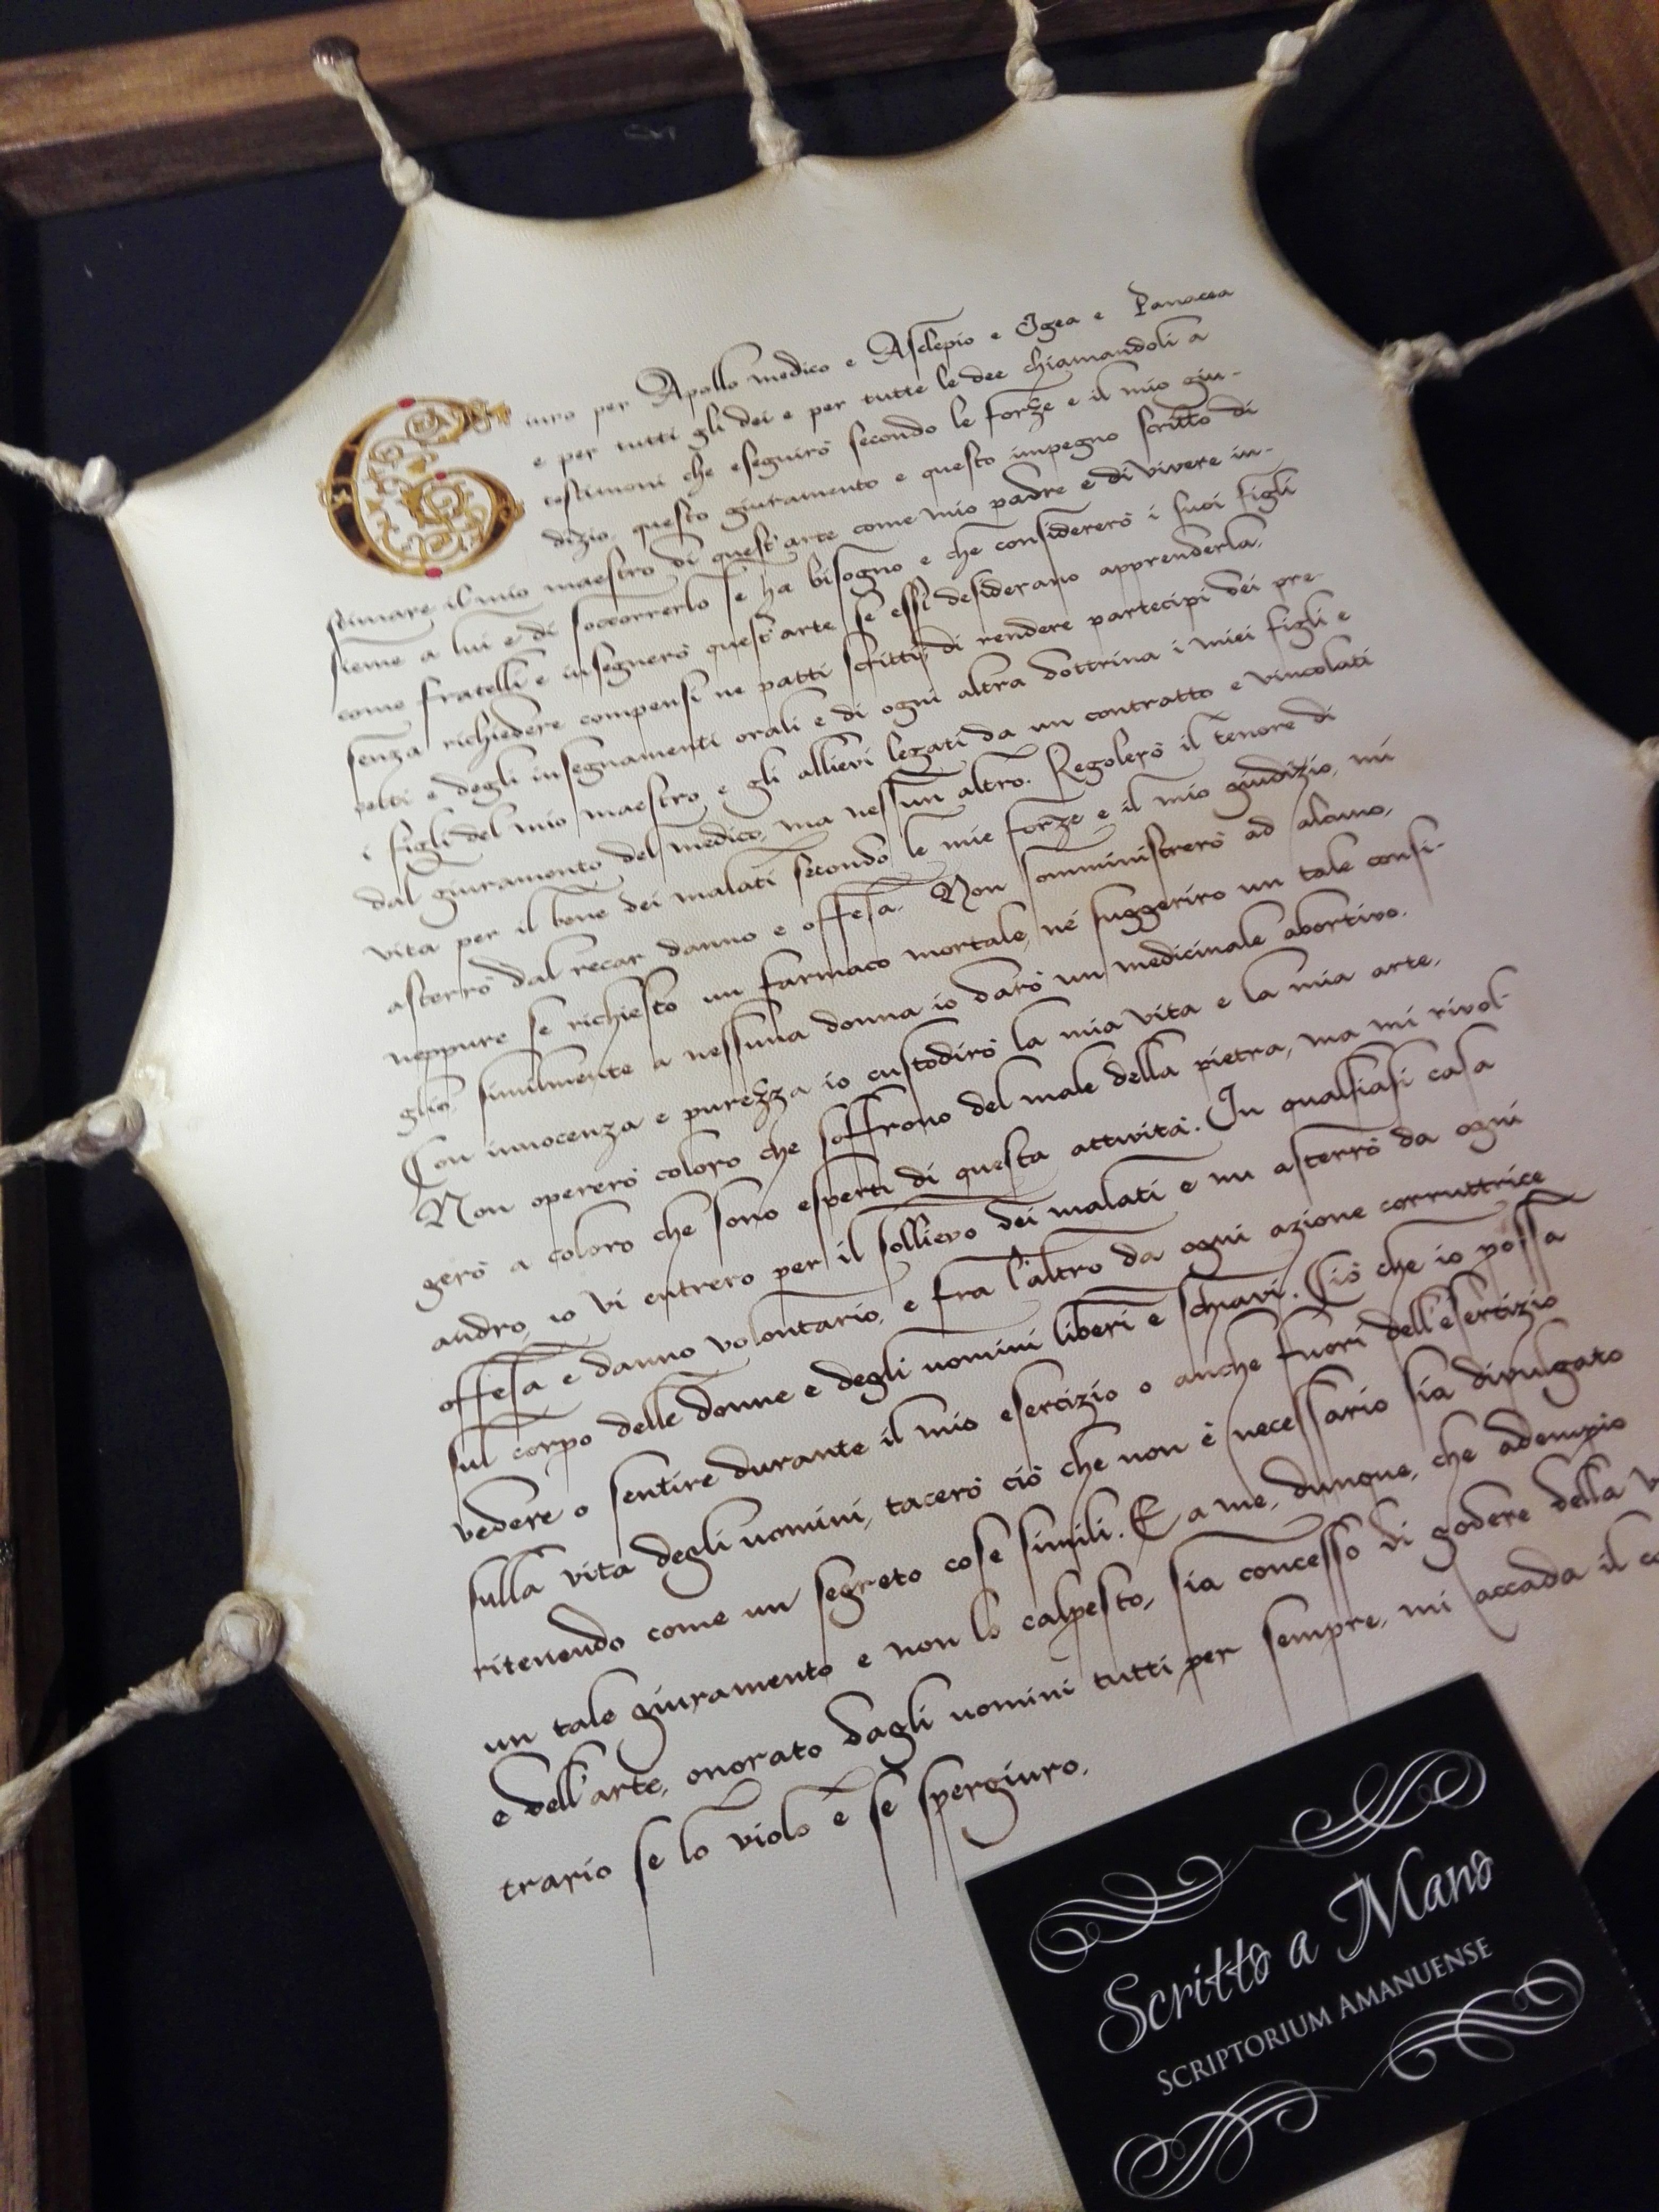 Giuro per Apollo medico e Asclepio e Igea e Panacea
e per tutti gli dei e per tutte le dee chiamandoli a
testimoni che eseguirò secondo le forze e il mio giu-
dizio, questo giuramento e questo impegno scritto di
stimare il mio maestro di quest'arte come mio padre e di vivere in-
sieme a lui e di soccorrerlo se ha bisogno e che considererò i suoi figli
come fratelli e insegnerò quest'arte se essi desiderano apprenderla,
senza richiedere compensi ne patti scritti, di rendere partecipi dei pre-
cetti e degli insegnamenti orali e di ogni altra dottrina i miei figli e
i figli del mio maestro e gli allievi legati da un contratto e vincolati
dal giuramento del medico, ma nessun altro. Regolerò il tenore di
vita per il bene dei malati secondo le mie forze e il mio giudizio, mi
asterrò dal recar danno e offesa. Non somministrerò ad alcuno,
neppure se richiesto un farmaco mortale, né suggerirò un tale consi-
glio, similmente a nessuna donna io darò un medicinale abortivo.
Con innocenza e purezza io custodirò la mia vita e la mia arte.
Non opererò coloro che soffrono del male della pietra, ma mi rivol-
gerò a coloro che sono esperti di questa attività. In qualsiasi casa
andrò, io vi entrerò per il sollievo dei malati e mi asterrò da ogni
offesa e danno volontario, e fra l'altro da ogni azione corruttrice
sul corpo delle donne e degli uomini liberi e schiavi. Ciò che io possa
vedere o sentire durante il mio esercizio o anche fuori dell'esercizio
sulla vita degli uomini, tacerò ciò che non è necessario sia divulgato
ritenendo come un segreto cose simili. E a me, dunque, che adempio
un tale giuramento e non lo calpesto, sia concesso di godere della
e dell'arte, onorato dagli uomini tutti per sempre, mi accada il
trario se lo violo e se spergiuro.
Scritto a Mano
SCRIPTORIUM AMANUENSE